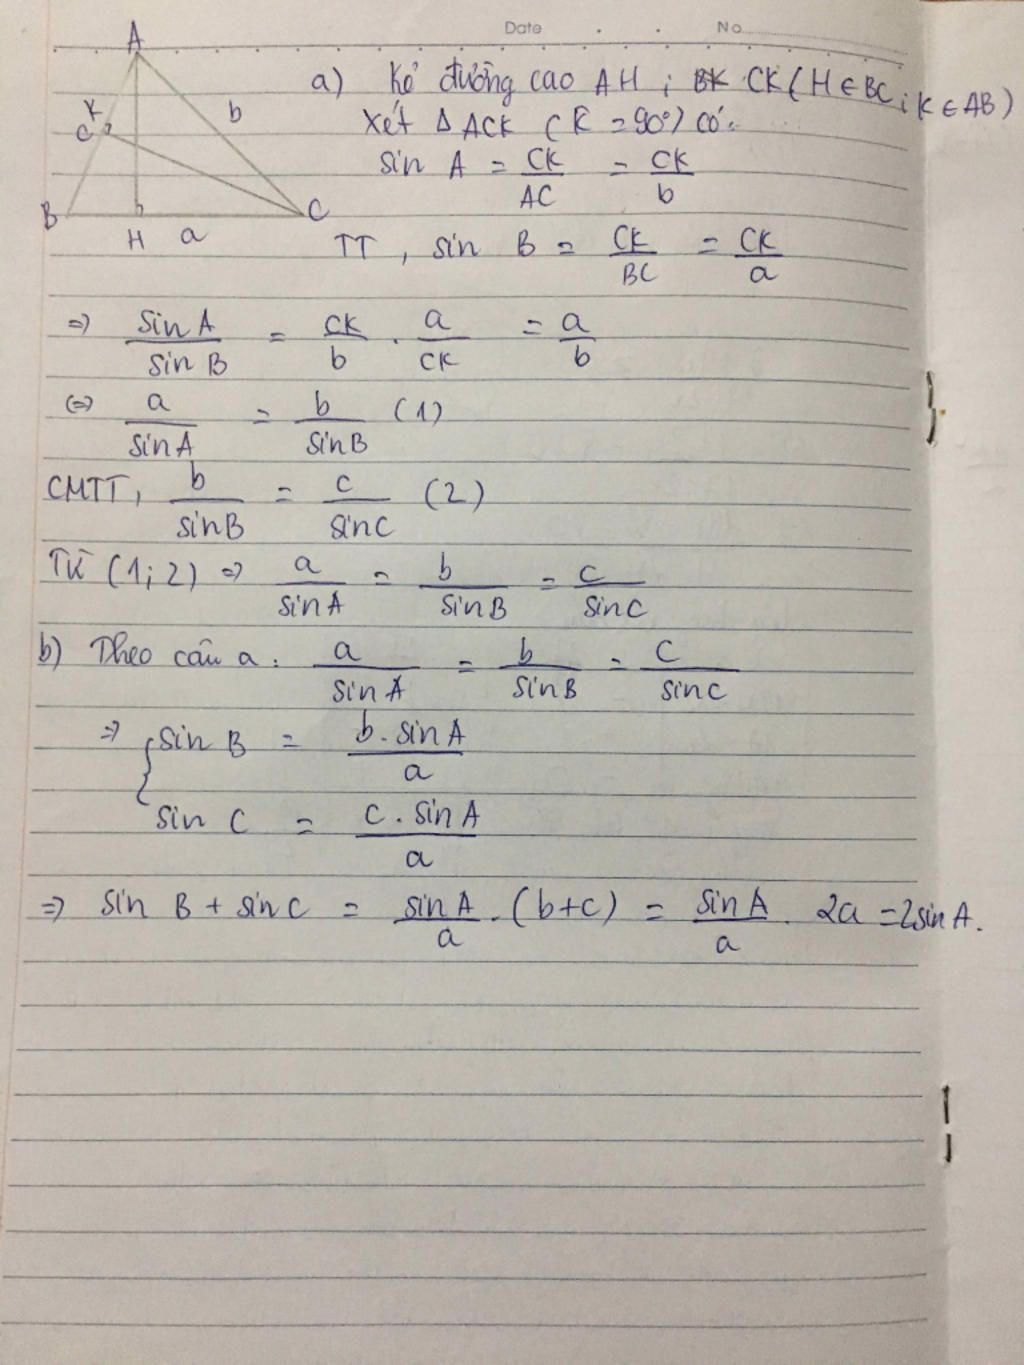 Date No
A
K
c
b
B
H
a
C
a) Kẻ đường cao AH ; BK CK (H ∈ BC ; K ∈ AB)
Xét Δ ACK (K̂ = 90°) có:
sin A = CK/AC = CK/b
TT, sin B = CK/BC = CK/a
=> sin A/sin B = CK/b . a/CK = a/b
<=> a/sin A = b/sin B (1)
CMTT, b/sin B = c/sin C (2)
Từ (1;2) => a/sin A = b/sin B = c/sin C
b) Theo câu a: a/sin A = b/sin B = c/sin C
=> { sin B = b.sin A/a
sin C = c.sin A/a
=> sin B + sin C = sin A/a . (b+c) = sin A/a . 2a = 2sin A.